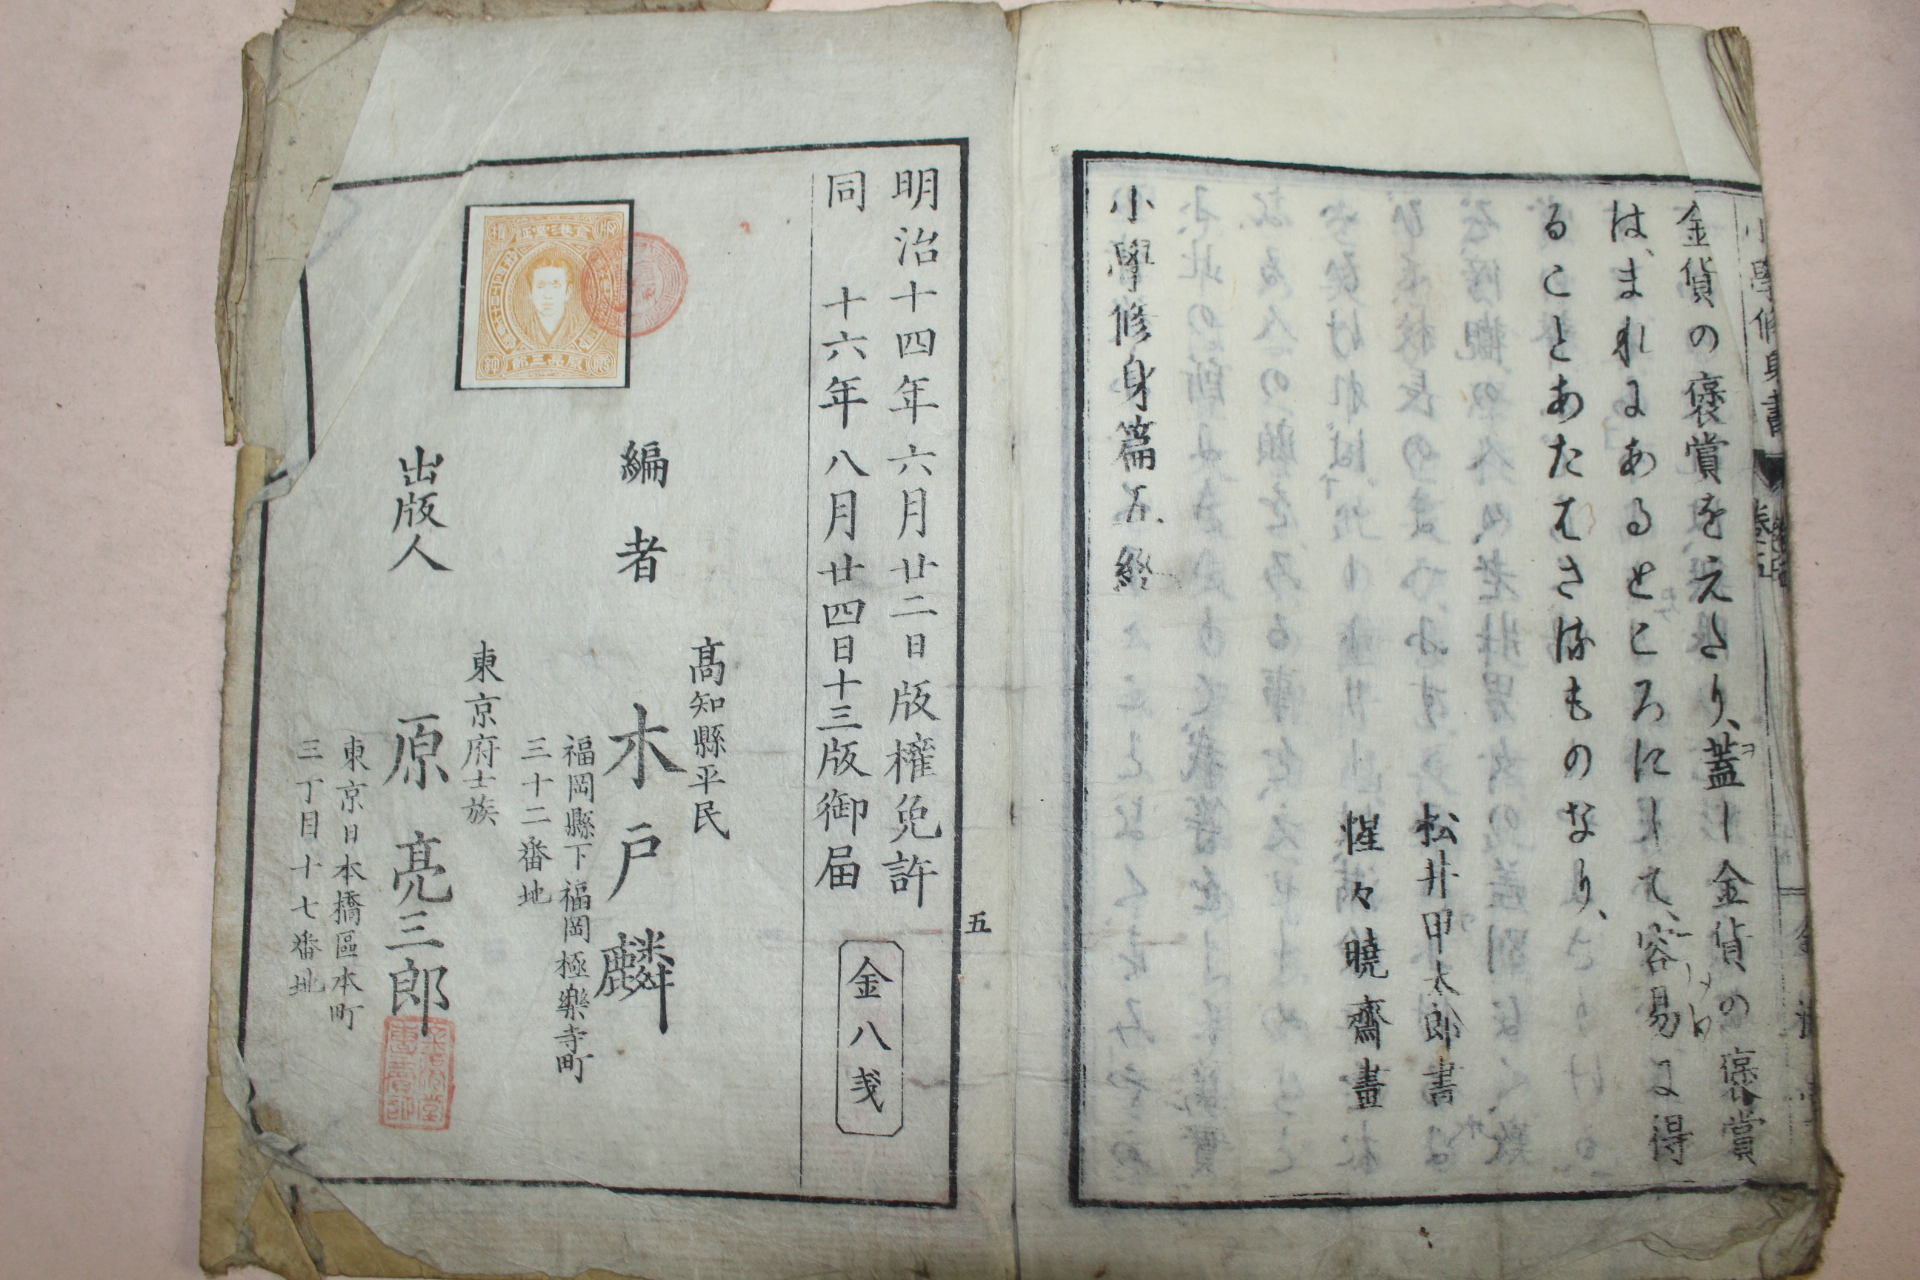 金貨の褒賞をえたり、蓋し金貨の褒賞
は、まれにあるところにして、容易に得
ることあたはざるものなり、
松井甲太郎書
惺々曉齋畫
小學修身篇五終
明治十四年六月廿二日版權免許
同　十六年八月廿四日十三版御届
金八戔
五
編者
高知縣平民
木戸麟
福岡縣下福岡極樂寺町
三十二番地
出版人
東京府士族
原亮三郎
東京日本橋區本町
三丁目十七番地